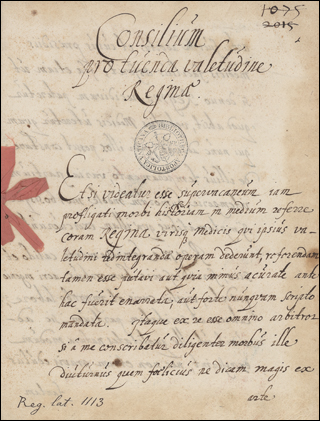 1075
2015
Consilium
pro tuenda valetudine
Reginæ
Etsi videatur esse supervacaneum tam
profligati morbi historiam in medium referre
coram Regina virisq medicis qui ipsius va-
letudini redintegranda operam dederunt, referendam
tamen esse putavi aut quia minus acurate ante
hac fuerit enarrata, aut forte nunquam scripto
mandata. Itaque ex re esse omnino arbitror
si a me conscribatur diligenter morbus ille
diuturnus quem fœlicius ne dicam magis ex
arte
Reg. lat. 1113